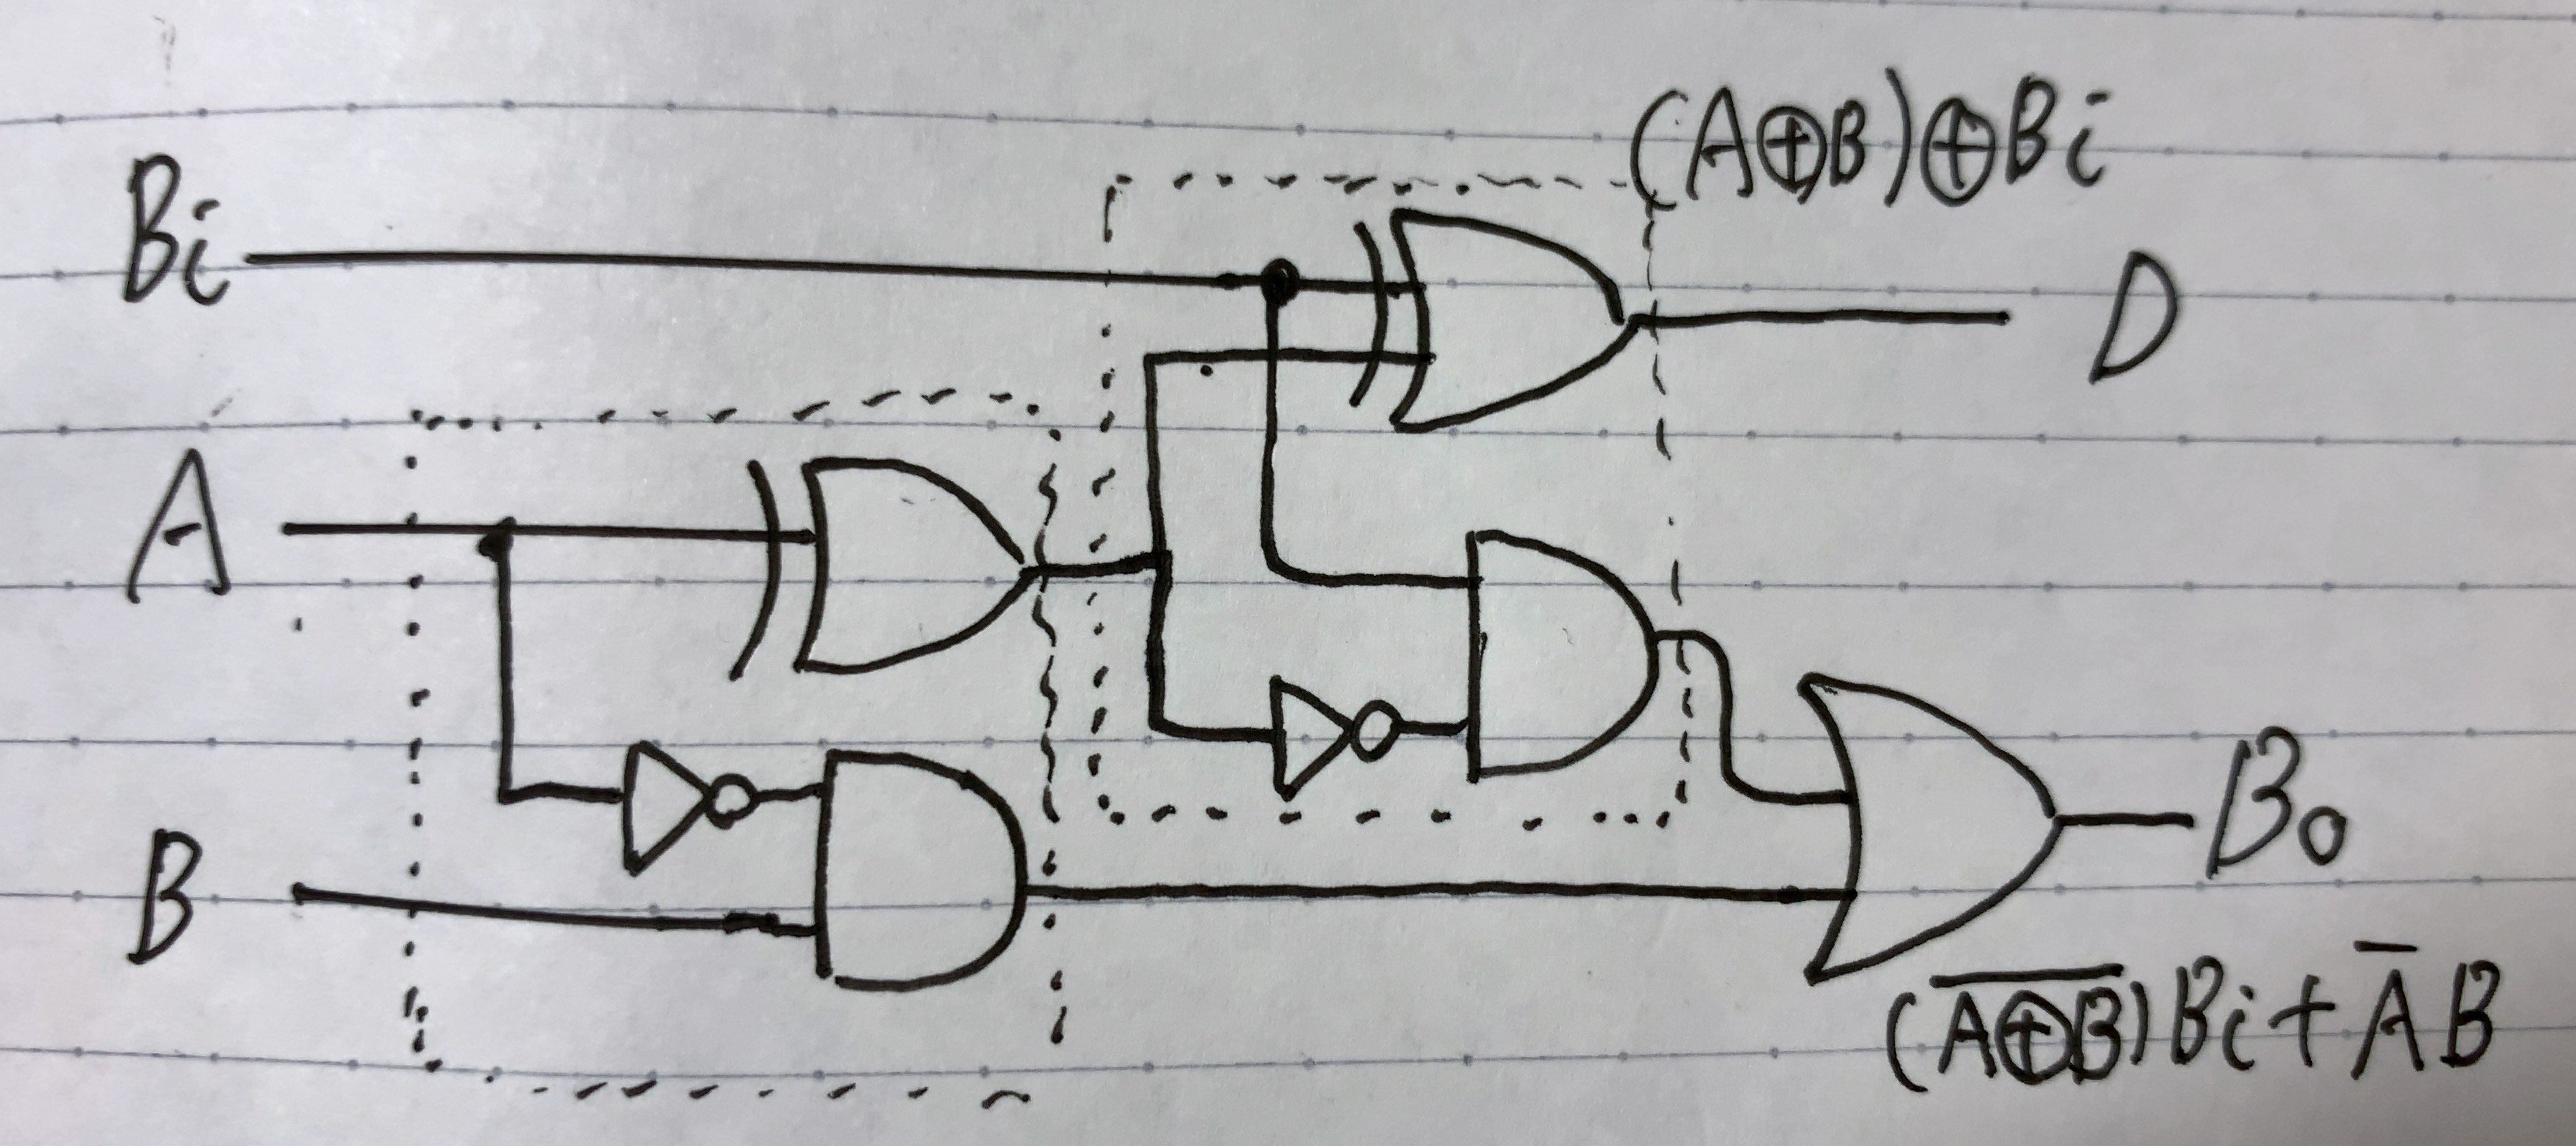 (A⊕B)⊕Bi
Bi
D
A
B
Bo
(A̅⊕̅B̅)Bi+A̅B